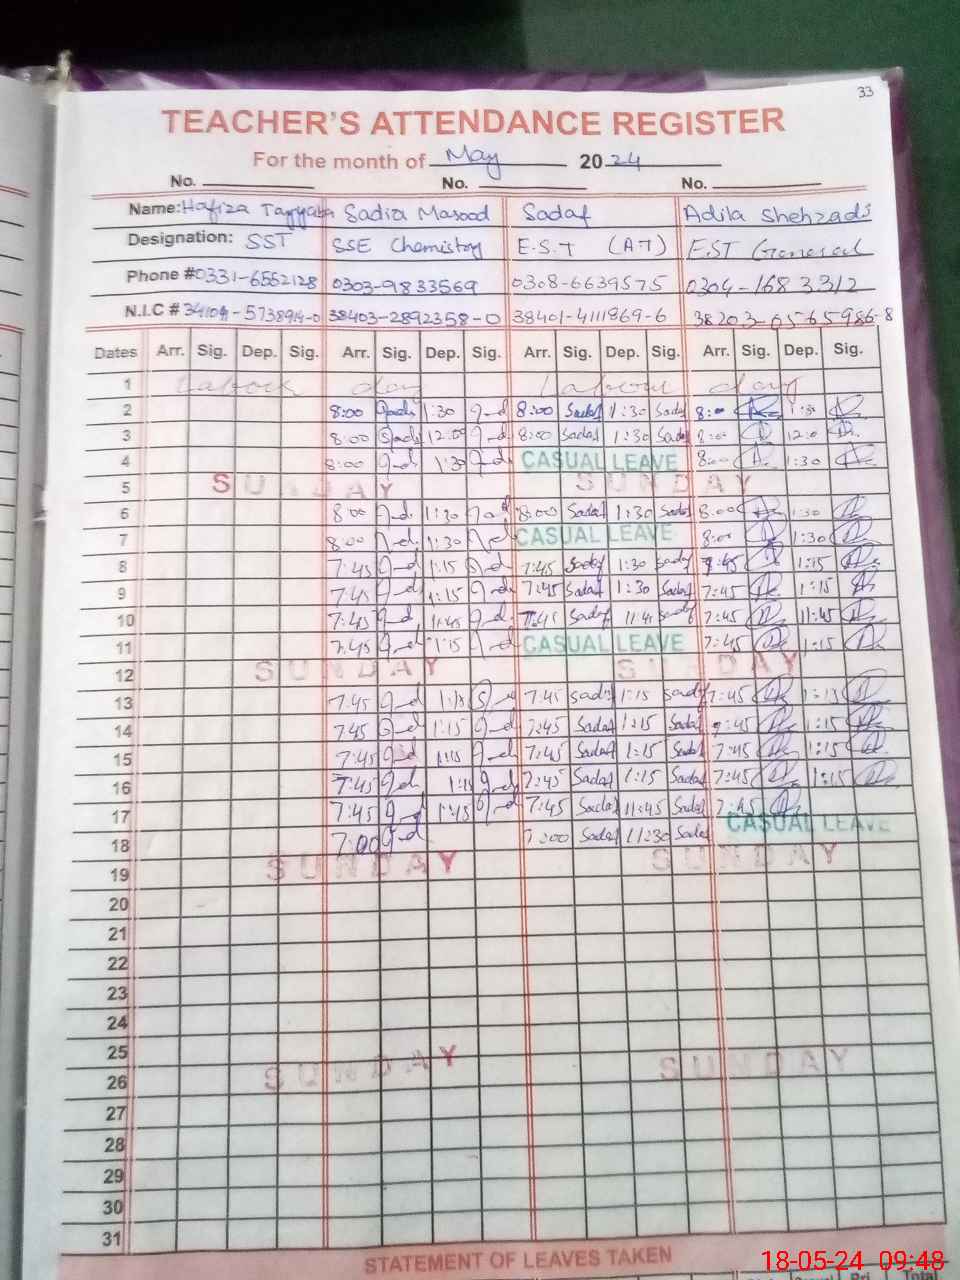 33
TEACHER'S ATTENDANCE REGISTER
For the month of May 2024
No. No. No.
Name: Hafiza Tayyaba Sadia Masood Sadaf Adila Shehzadi
Designation: SST SSE Chemistry E.S.T (AT) EST General
Phone # 0331-6552128 0303-9833569 0308-6639575 0304-1683312
N.I.C # 38403-2892358-0 38401-4111969-6 38203-6565986-8
Dates Arr. Sig. Dep. Sig. Arr. Sig. Dep. Sig. Arr. Sig. Dep. Sig. Arr. Sig. Dep. Sig.
1 Labour day Labour day
2 8:00 1:30 8:00 Sadaf 1:30 Sadaf 8:00 1:30
3 8:00 12:00 8:00 Sadaf 1:30 Sadaf 8:00 12:0
4 8:00 1:30 CASUAL LEAVE 8:00 1:30
5 SUNDAY SUNDAY
6 8:00 1:30 8:00 Sadaf 1:30 Sadaf 8:00 1:30
7 8:00 1:30 CASUAL LEAVE 8:00 1:30
8 7:45 1:15 7:45 Sadaf 1:30 Sadaf 7:45 1:15
9 7:45 1:15 7:45 Sadaf 1:30 Sadaf 7:45 1:15
10 7:45 11:45 7:45 Sadaf 11:45 Sadaf 7:45 11:45
11 7:45 1:15 CASUAL LEAVE 7:45 1:15
12 SUNDAY SUNDAY
13 7:45 1:15 7:45 Sadaf 1:15 Sadaf 7:45 1:15
14 7:45 1:15 7:45 Sadaf 1:15 Sadaf 7:45 1:15
15 7:45 1:15 7:45 Sadaf 1:15 Sadaf 7:45 1:15
16 7:45 1:15 7:45 Sadaf 1:15 Sadaf 7:45 1:15
17 7:45 7:45 Sadaf 11:45 Sadaf 7:45
18 7:00 7:00 Sadaf 11:30 Sadaf CASUAL LEAVE
19 SUNDAY SUNDAY
20
21
22
23
24
25
26 SUNDAY SUNDAY
27
28
29
30
31
STATEMENT OF LEAVES TAKEN
18-05-24 09:48